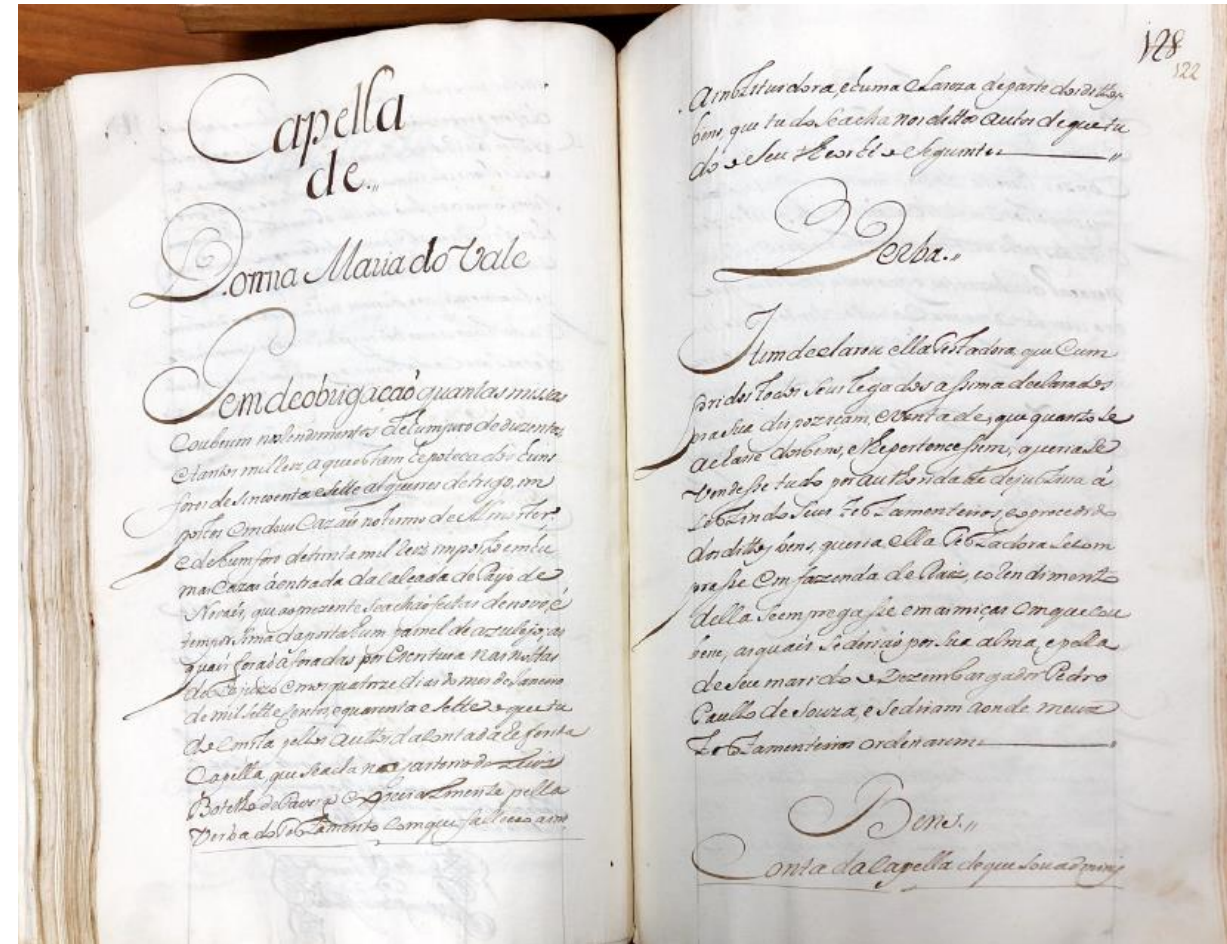 Capella
de..
Donna Maria do Vale
Tem de obrigação quantas missas
Couberem no Rendimentos de hum juro de duzentos
e tantos mil Reis, a que estam hepotecados huns
foros de sincoenta e sette alqueires de trigo, im
postos em dous Cazais no termo de Almoster
e de hum foro de trinta mil Reis imposto em hu
mas Cazas á entrada da calcada do Payo de
Novais, que ao prezente se achaõ feitas de novo, é
tem por sima da porta hum painel de azulejo; as
quais foraõ aforadas por Escritura nas nottas
de em os quatorze dias do mes de Janeiro
de mil sette sentos, e quarenta e sette o que tu
do Consta pellos Auttos da Conta da referida
Capella, que se acha no cartorio de Luis
Botelho de e expreciamente pella
Verba do Testamento com que falleceo a ins
128
122
A instituidora, e huma Clareza de parte dos dittos
bens, que tudo se acha nos dittos autos de que tu
do o seu theor hé o Seguinte
Verba..
Item declarou ella Testadora, que Cum
pridos todos seus legados assima declarados
hra sua dispoziçam, e vontade, que quanto se
achase dos bens, e lhe pertencessem, queria se
vendesse tudo por authoridade de justissa á
seus Testamenteiros, e o procedido
dos dittos bens, queria ella Testadora se com
prasse em fazenda de Raiz, e o Rendimento
della se empregasse em missas em que cou
bece, as quais se deriaõ por sua alma, e pella
de seu marido o Dezembargador Pedro
Paullo de Souza, e se diriam aonde meus
Testamenteiros ordenarem
Bens..
Conta da Capella de que sou adminis